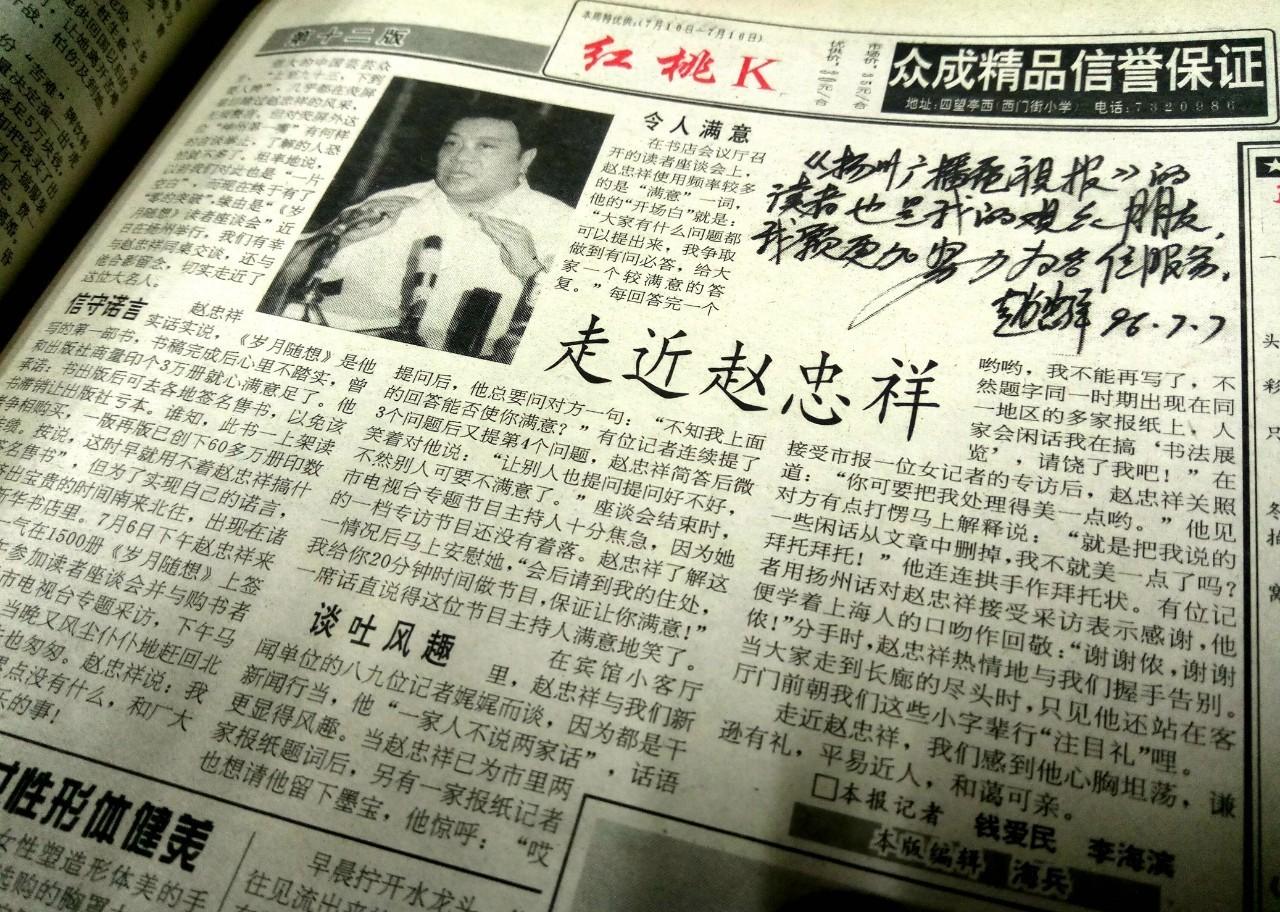 第十三版
本周特优供:(7月10日—7月16日)
红桃K
市场价:
优供价:
元/合
元/合
众成精品信誉保证
地址:四望亭西(西门街小学) 电话:7320986
《扬州广播电视报》的
读者也是我的观众朋友,
我愿更加努力为各位服务。
赵忠祥 96.7.7
走近赵忠祥
偌大的中国芸芸众
位"神州第一嘴"有何样
的言谈举止,了解的人恐
怕就不多了。坦率地说,
以前我们对此也是"一片
空白",而现在终于有了
"零的突破",缘由是"《岁
月随想》读者座谈会"近
日在扬州举行,我们有幸
与赵忠祥同桌交谈,还与
他合影留念,切实走近了
这位大名人。
信守诺言
赵忠祥
实话实说,《岁月随想》是他
写的第一部书,书稿完成后心里不踏实,曾
和出版社商量印个3万册就心满意足了。他
承诺:书出版后可去各地签名售书,以免该
书滞销让出版社亏本。谁知,此书一上架读
者争相购买,一版再版已创下60多万册印数
。按说,这时早就用不着赵忠祥搞什
名售书",但为了实现自己的诺言,
挤出宝贵的时间南来北往,出现在诸
新华书店里。7月6日下午赵忠祥来
一气在1500册《岁月随想》上签
参加读者座谈会并与购书者
市电视台专题采访,下午马
当晚又风尘仆仆地赶回北
也匆匆。赵忠祥说:我
点没有什么,和广大
乐的事!
令人满意
在书店会议厅召
开的读者座谈会上,
赵忠祥使用频率较多
的是"满意"一词,
他的"开场白"就是:
"大家有什么问题都
可以提出来,我争取
做到有问必答,给大
家一个较满意的答
复。"每回答完一个
提问后,他总要问对方一句:"不知我上面
的回答能否使你满意?"有位记者连续提了
3个问题后又提第4个问题,赵忠祥简答后微
笑着对他说:"让别人也提问提问好不好,
不然别人可要不满意了。"座谈会结束时,
市电视台专题节目主持人十分焦急,因为她
的一档专访节目还没有着落。赵忠祥了解这
一情况后马上安慰她,"会后请到我的住处,
我给你20分钟时间做节目,保证让你满意!"
一席话直说得这位节目主持人满意地笑了。
谈吐风趣
在宾馆小客厅
里,赵忠祥与我们新
闻单位的八九位记者娓娓而谈,因为都是干
新闻行当,他"一家人不说两家话",话语
更显得风趣。当赵忠祥已为市里两
家报纸题词后,另有一家报纸记者
也想请他留下墨宝,他惊呼:"哎
哟哟,我不能再写了,不
然题字同一时期出现在同
一地区的多家报纸上,人
家会闲话我在搞'书法展
览',请饶了我吧!"在
接受市报一位女记者的专访后,赵忠祥关照
道:"你可要把我处理得美一点哟。"他见
对方有点打愣马上解释说:"就是把我说的
一些闲话从文章中删掉,我不就美一点了吗?
拜托拜托!"他连连拱手作拜托状。有位记
者用扬州话对赵忠祥接受采访表示感谢,他
便学着上海人的口吻作回敬:"谢谢侬,谢谢
侬!"分手时,赵忠祥热情地与我们握手告别。
当大家走到长廊的尽头时,只见他还站在客
厅门前朝我们这些小字辈行"注目礼"哩。
走近赵忠祥,我们感到他心胸坦荡,谦
逊有礼,平易近人,和蔼可亲。
□本报记者 钱爱民 李海滨
本版编辑 海兵
性形体健美
女性塑造形体美的手
早晨拧开水龙头
往见流出来